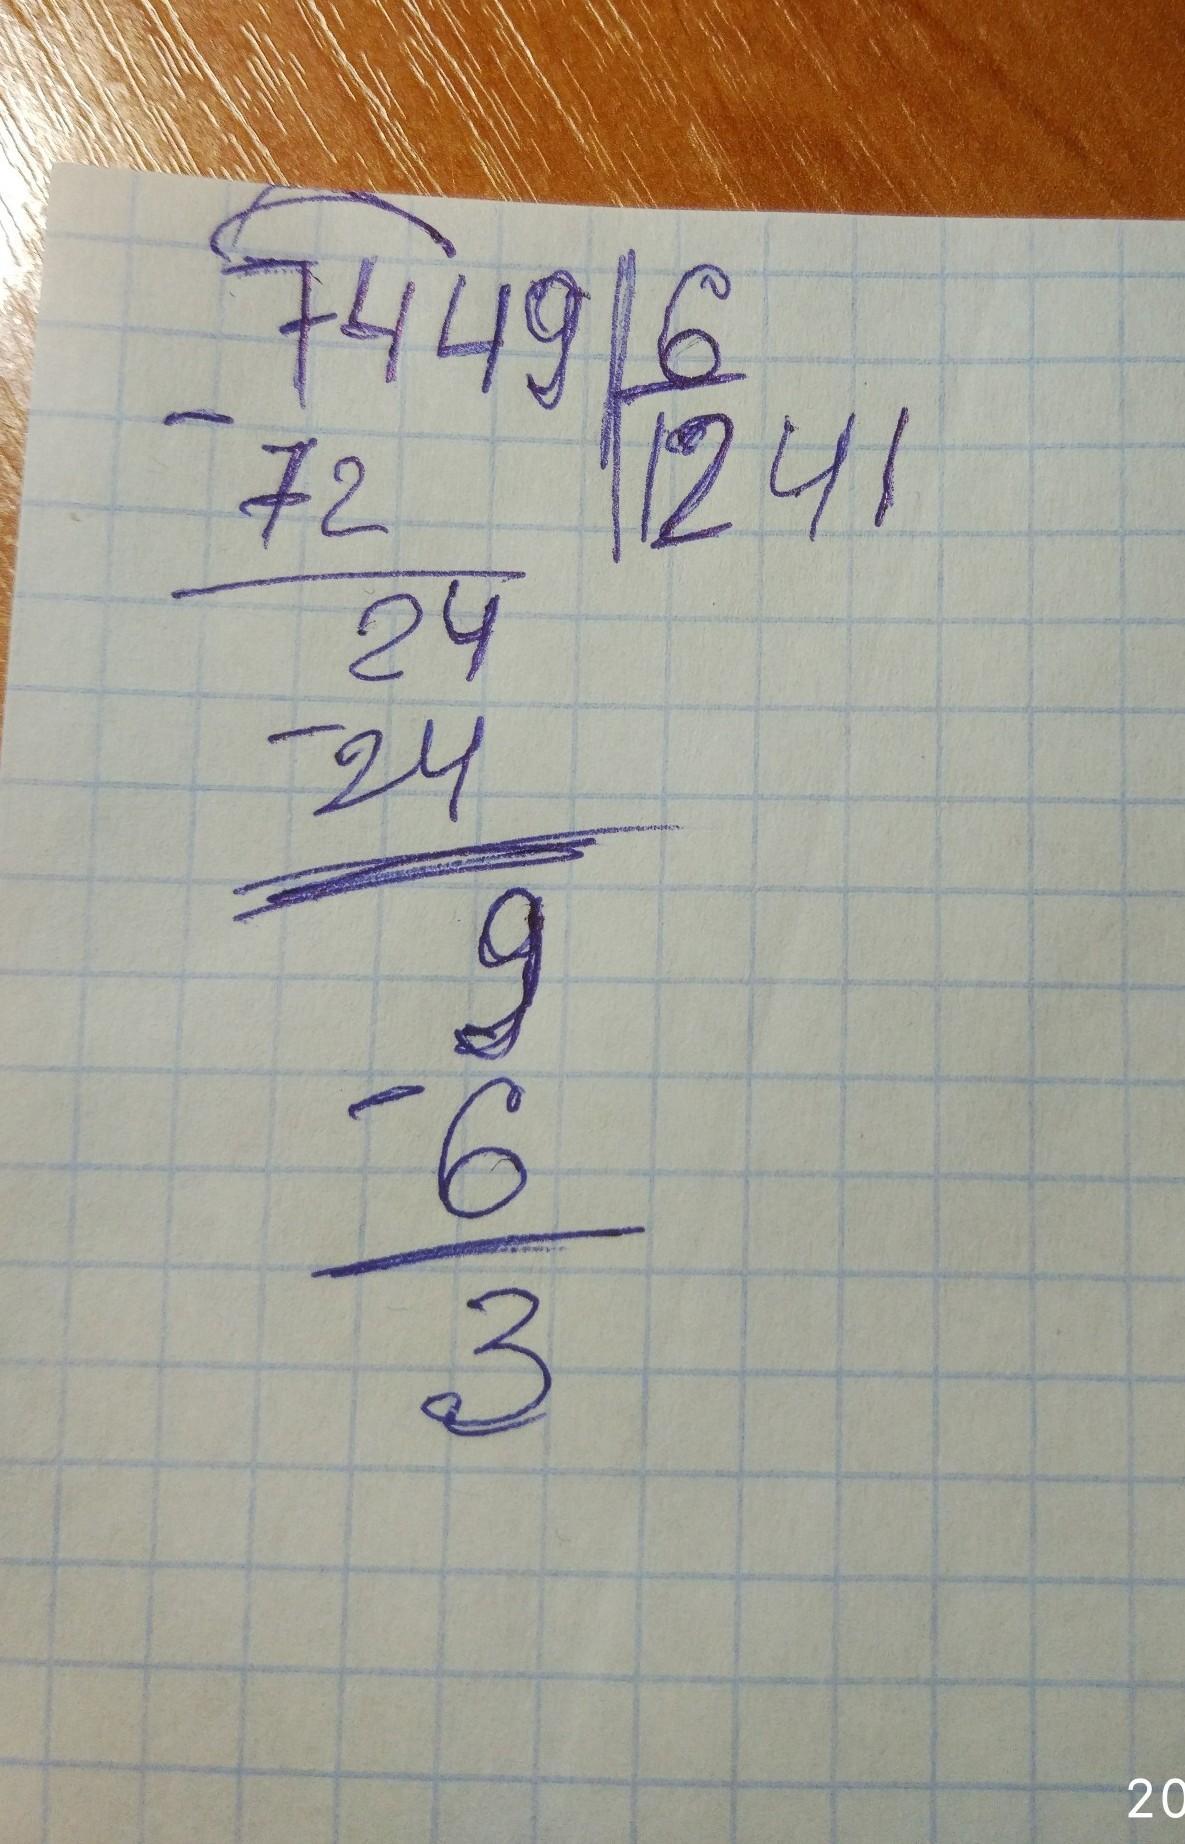 7449 6
- 72 1241
24
- 24
9
- 6
3
20